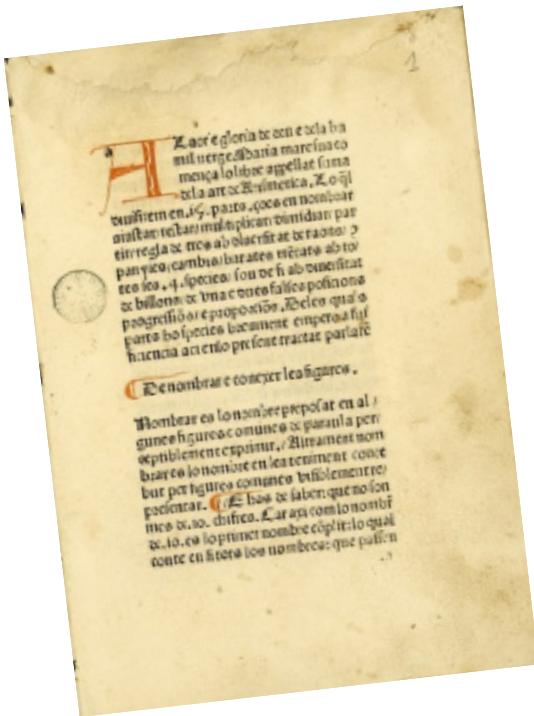 1
A Laor e gloria de deu e dela hu
mil uerge Maria mare sua co
mença lo libre appellat suma
dela art de Arismetica, Lo q̃l
diuisirem en .15. parts, ço es en nombrar
aiustar: restar: multiplicar: dimidiar: par
tir: regla de tres ab diuersitat de raons:
panyies: cambis: barates
tes les .4. species: son de fi ab diuersitat
de billons: de vna e dues falses posicions
progressiõs: e proporciõs. Deles quals
parts ho species breument empero a suf
ficiencia aci en lo present tractat parlarẽ
De nombrar e conexer les figures.
Nombrar es lo nombre preposat en al
gunes figures comunes de paraula per
ceptiblement exprimir. Altrament nom
brar es lo nombre en lenteniment conce
but per figures comunes visiblement re
presentar. E has de saber: que no son
mes de .10. chifres. Car axi com lo nombr̃
de .10. es lo primer nombre cõplit: lo qual
conte en si tots los nombres: que passen